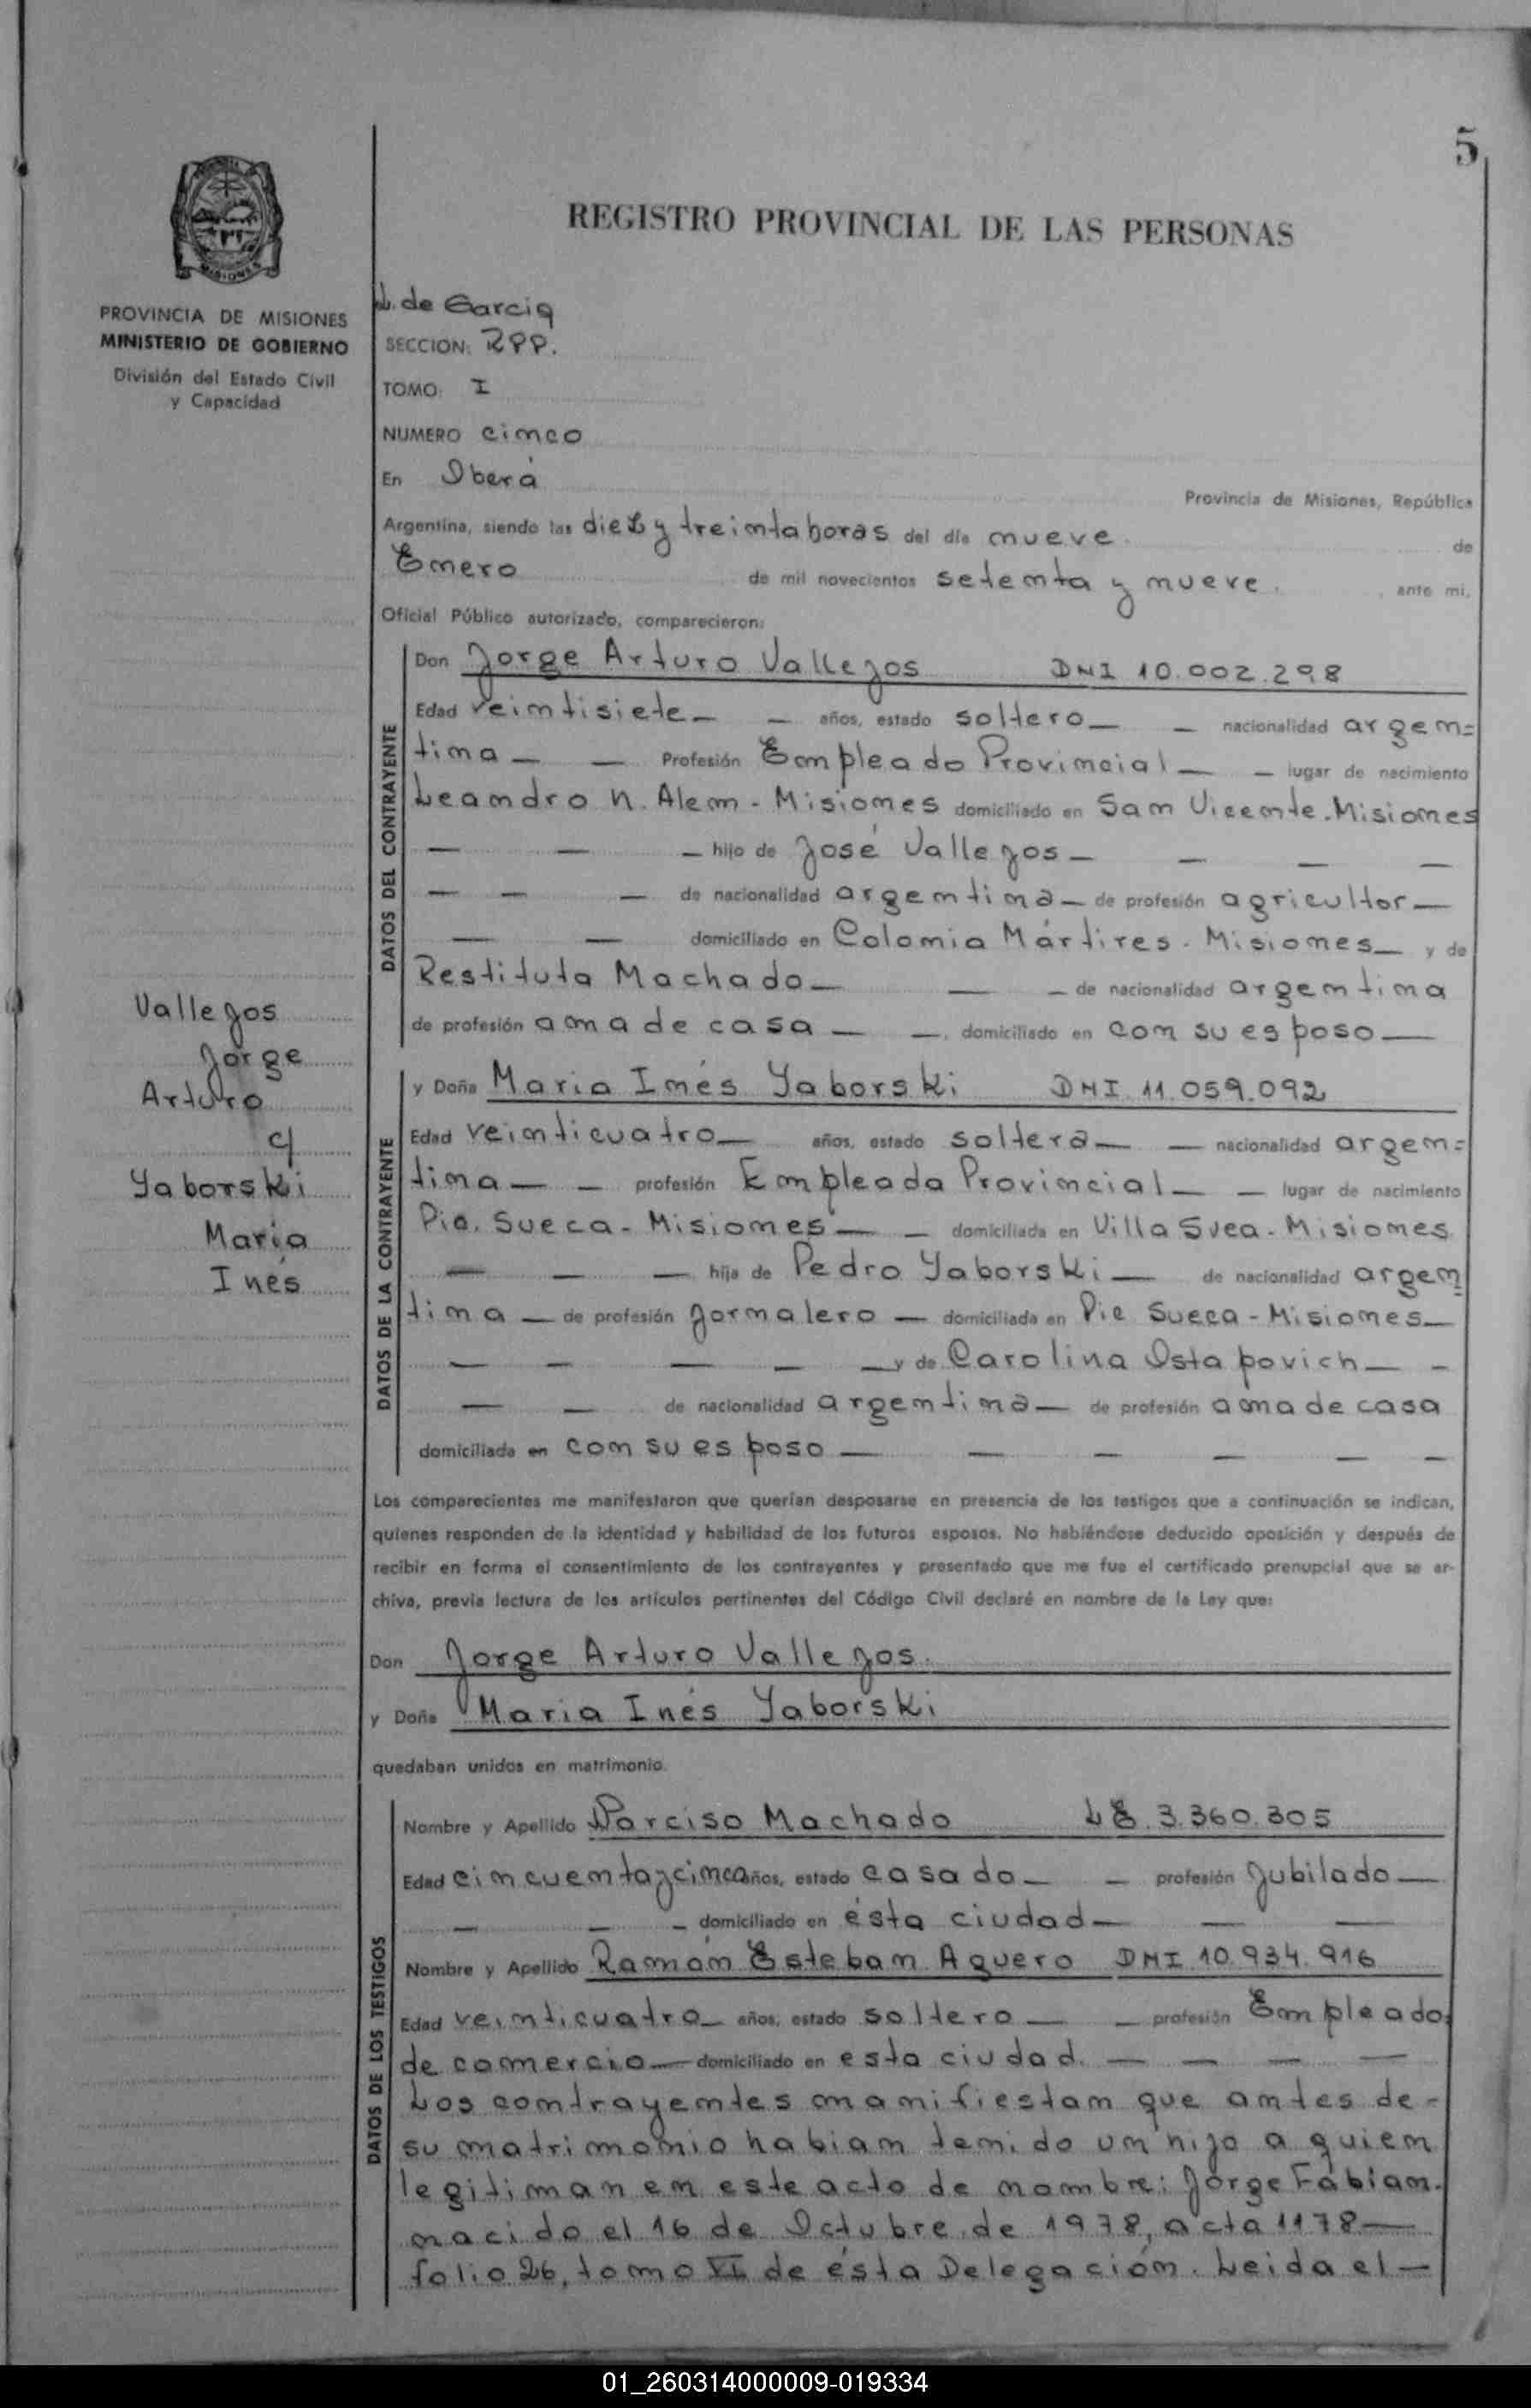 5
REGISTRO PROVINCIAL DE LAS PERSONAS
MISIONES
PROVINCIA DE MISIONES
MINISTERIO DE GOBIERNO
División del Estado Civil
y Capacidad
L. de Garcia
SECCION: RPP.
TOMO: I
NUMERO cinco
En Oberá
Provincia de Misiones, República
Argentina, siendo las diez y treinta horas del día nueve de
Enero de mil novecientos setenta y nueve. , ante mi,
Oficial Público autorizado, comparecieron:
DATOS DEL CONTRAYENTE
Don Jorge Arturo Vallejos DNI 10.002.298
Edad veintisiete — — años, estado soltero — — nacionalidad argen=
tina — — Profesión Empleado Provincial — — lugar de nacimiento
Leandro N. Alem - Misiones domiciliado en San Vicente. Misiones
— — — hijo de José Vallejos — — — —
— — — de nacionalidad argentina — de profesión agricultor —
— — domiciliado en Colonia Mártires - Misiones — y de
Restituta Machado — — — de nacionalidad argentina
de profesión ama de casa — —, domiciliado en con su esposo —
Vallejos
Jorge
Arturo
c/
Yaborski
Maria
Inés
DATOS DE LA CONTRAYENTE
y Doña Maria Inés Yaborski DNI 11.059.092
Edad veinticuatro — años, estado soltera — — nacionalidad argen=
tina — — profesión Empleada Provincial — — lugar de nacimiento
Pia. Sueca - Misiones — — domiciliada en Villa Svea - Misiones
— — — hija de Pedro Yaborski — de nacionalidad argen=
tina — de profesión jornalero — domiciliada en Pie Sueca - Misiones —
— — — — — y de Carolina Ostapovich — —
— — de nacionalidad argentina — de profesión ama de casa
domiciliada en con su esposo — — — — — —
Los comparecientes me manifestaron que querían desposarse en presencia de los testigos que a continuación se indican,
quienes responden de la identidad y habilidad de los futuros esposos. No habiéndose deducido oposición y después de
recibir en forma el consentimiento de los contrayentes y presentado que me fue el certificado prenupcial que se ar-
chiva, previa lectura de los artículos pertinentes del Código Civil declaré en nombre de la Ley que:
Don Jorge Arturo Vallejos.
y Doña Maria Inés Yaborski
quedaban unidos en matrimonio.
DATOS DE LOS TESTIGOS
Nombre y Apellido Narciso Machado LE. 3.360.305
Edad cincuenta y cinco años, estado casado — — profesión Jubilado —
— — — domiciliado en ésta ciudad — — —
Nombre y Apellido Ramón Esteban Aguero DNI 10.934.916
Edad veinticuatro — años, estado soltero — — profesión Empleado
de comercio — domiciliado en esta ciudad. — — — —
Los contrayentes manifiestan que antes de -
su matrimonio habian tenido un hijo a quien
legitiman en este acto de nombre: Jorge Fabian.
nacido el 16 de Octubre de 1978, acta 1178 —
folio 26, tomo VI de ésta Delegación. Leida el —
01_260314000009-019334